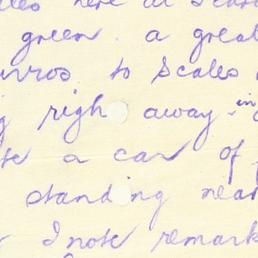 here at
green. a great
to Scales
righ away in
a car of
standing near
I note remark